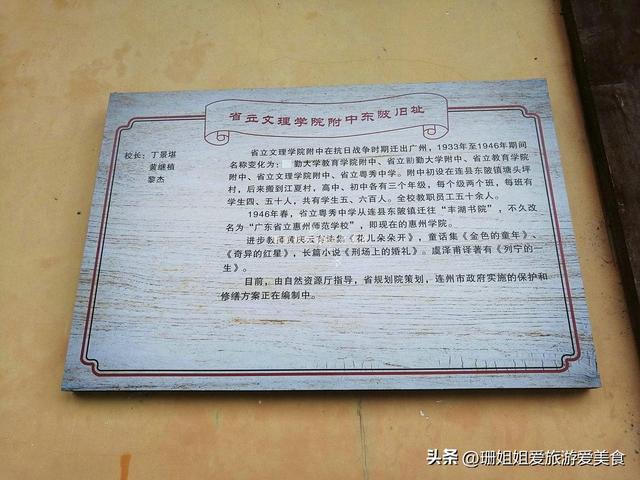 省立文理学院附中东陂旧址
校长：丁景堪
黄继植
黎杰
省立文理学院附中在抗日战争时期迁出广州，1933年至1946年期间
名称变化为：勤大学教育学院附中、省立勷勤大学附中、省立教育学院
附中、省立文理学院附中、省立粤秀中学。附中初设在连县东陂镇塘头坪
村，后来搬到江夏村，高中、初中各有三个年级，每个级两个班，每班有
学生四、五十人，共有学生五、六百人。全校教职员工五十余人。
1946年春，省立粤秀中学从连县东陂镇迁往“丰湖书院”，不久改
名为“广东省立惠州师范学校”，即现在的惠州学院。
进步教师黄庆云有诗集《花儿朵朵开》，童话集《金色的童年》、
《奇异的红星》，长篇小说《刑场上的婚礼》。虞泽甫译著有《列宁的一
生》。
目前，由自然资源厅指导，省规划院策划，连州市政府实施的保护和
修缮方案正在编制中。
头条 @珊姐姐爱旅游爱美食